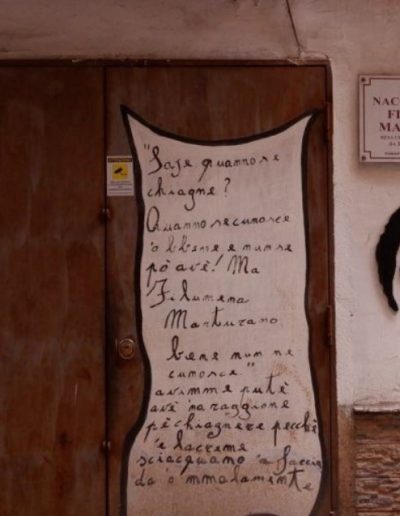 "Saje quanno se
chiagne?
Quanno se cunosce
'o bbene e nun se
pò avè! Ma
Filumena
Marturano
bene nun ne
cunosce"
avimme putè
avè 'na raggione
pe chiagnere pecchè
'e lacreme
sciacquano 'a faccia
da 'o mmalamente
NAC
FI
MA